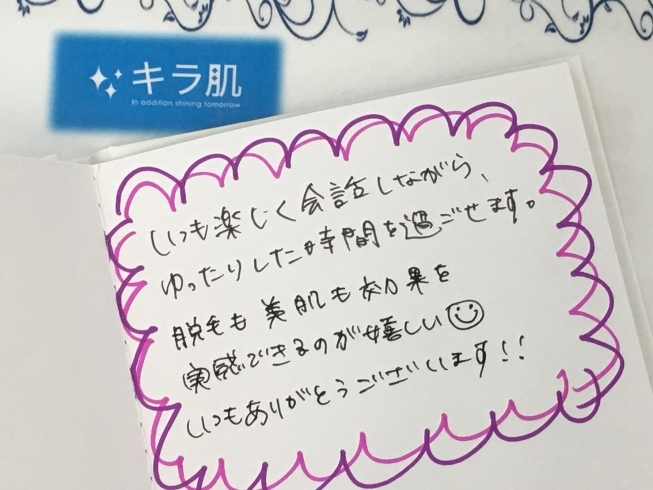 キラ肌
In addition shining tomorrow
いつも楽しく会話しながら、
ゆったりした時間を過ごせます。
脱毛も美肌も効果を
実感できるのが嬉しい
いつもありがとうございます!!